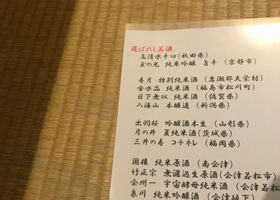 選ばれし美酒
高清水辛口(秋田県)
玉の光 純米吟醸 (京都市)
寿月 特別純米酒 (岩瀬郡天栄村)
金水晶 純米酒 (福島市松川町)
日下無双 純米酒 (佐賀県)
八海山 本醸造 (新潟県)
出羽桜 吟醸酒本生 (山形県)
月の井 夏純米酒(茨城県)
三井の寿 コチネレ (福岡県)
国権 純米原酒 (南会津)
竹正宗 無濾過生原酒(会津若松市)
会州一 宇宙酵母純米酒 (会津若松
泉川 純米吟醸酒 (会津坂下)